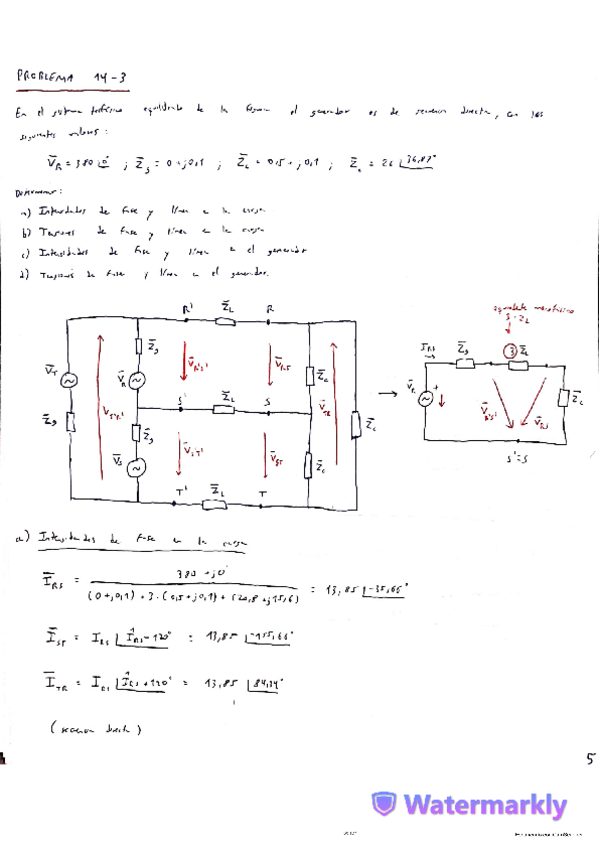 PROBLEMA 14-3
En el sistema trifásico equilibrado de la figura el generador es de secuencia directa, con los
siguientes valores:
V̄R = 380 |0° ; Z̄g = 0 + j0,1 ; Z̄L = 0,5 + j0,1 ; Z̄c = 26 |36,87°
Determinar:
a) Intensidades de fase y línea en la carga
b) Tensiones de fase y línea en la carga
c) Intensidades de fase y línea en el generador
d) Tensiones de fase y línea en el generador.
equivalente monofásico
3·Z̄L
R' Z̄L R
V̄T Z̄g V̄R V̄R'S' V̄RS Z̄c
Z̄g V̄T'R' S' Z̄L S V̄TR Z̄c
Z̄g V̄S V̄S'T' V̄ST Z̄c
T' Z̄L T
ĪRS Z̄g 3 Z̄L
V̄R V̄R'S' V̄RS Z̄c
S'=S
a) Intensidades de fase en la carga
ĪRS = 380 + j0 / (0+j0,1) + 3·(0,5+j0,1) + (20,8+j15,6) = 13,85 |-35,66°
ĪST = IRS |ÎRS-120° = 13,85 |-155,66°
ĪTR = IRS |ÎRS+120° = 13,85 |84,34°
(secuencia directa)
5
Watermarkly